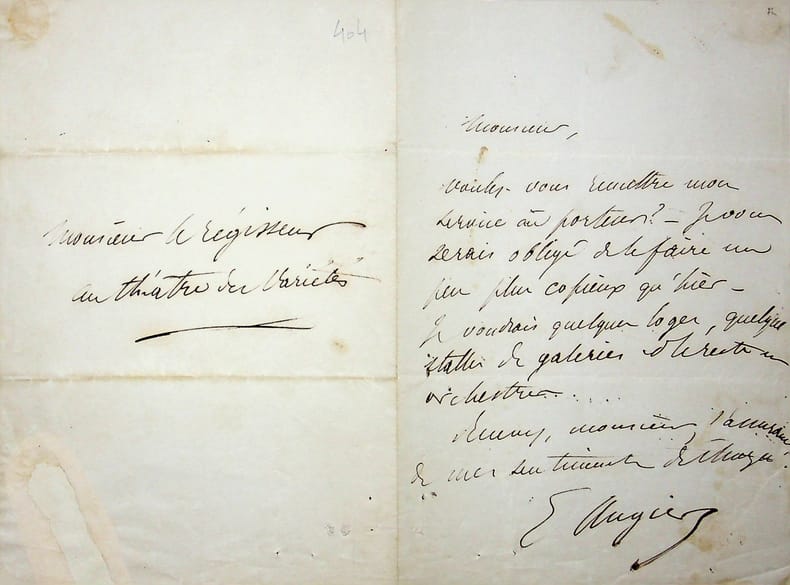 404
Monsieur le régisseur
au théâtre des Variétés
Monsieur,
voulez-vous remettre mon
service au porteur? – Je vous
serais obligé de le faire un
peu plus copieux qu'hier –
Je voudrais quelques loges, quelques
stalles de galeries et le reste en
orchestre....
monsieur l'assurance
de mes sentiments
E Augier